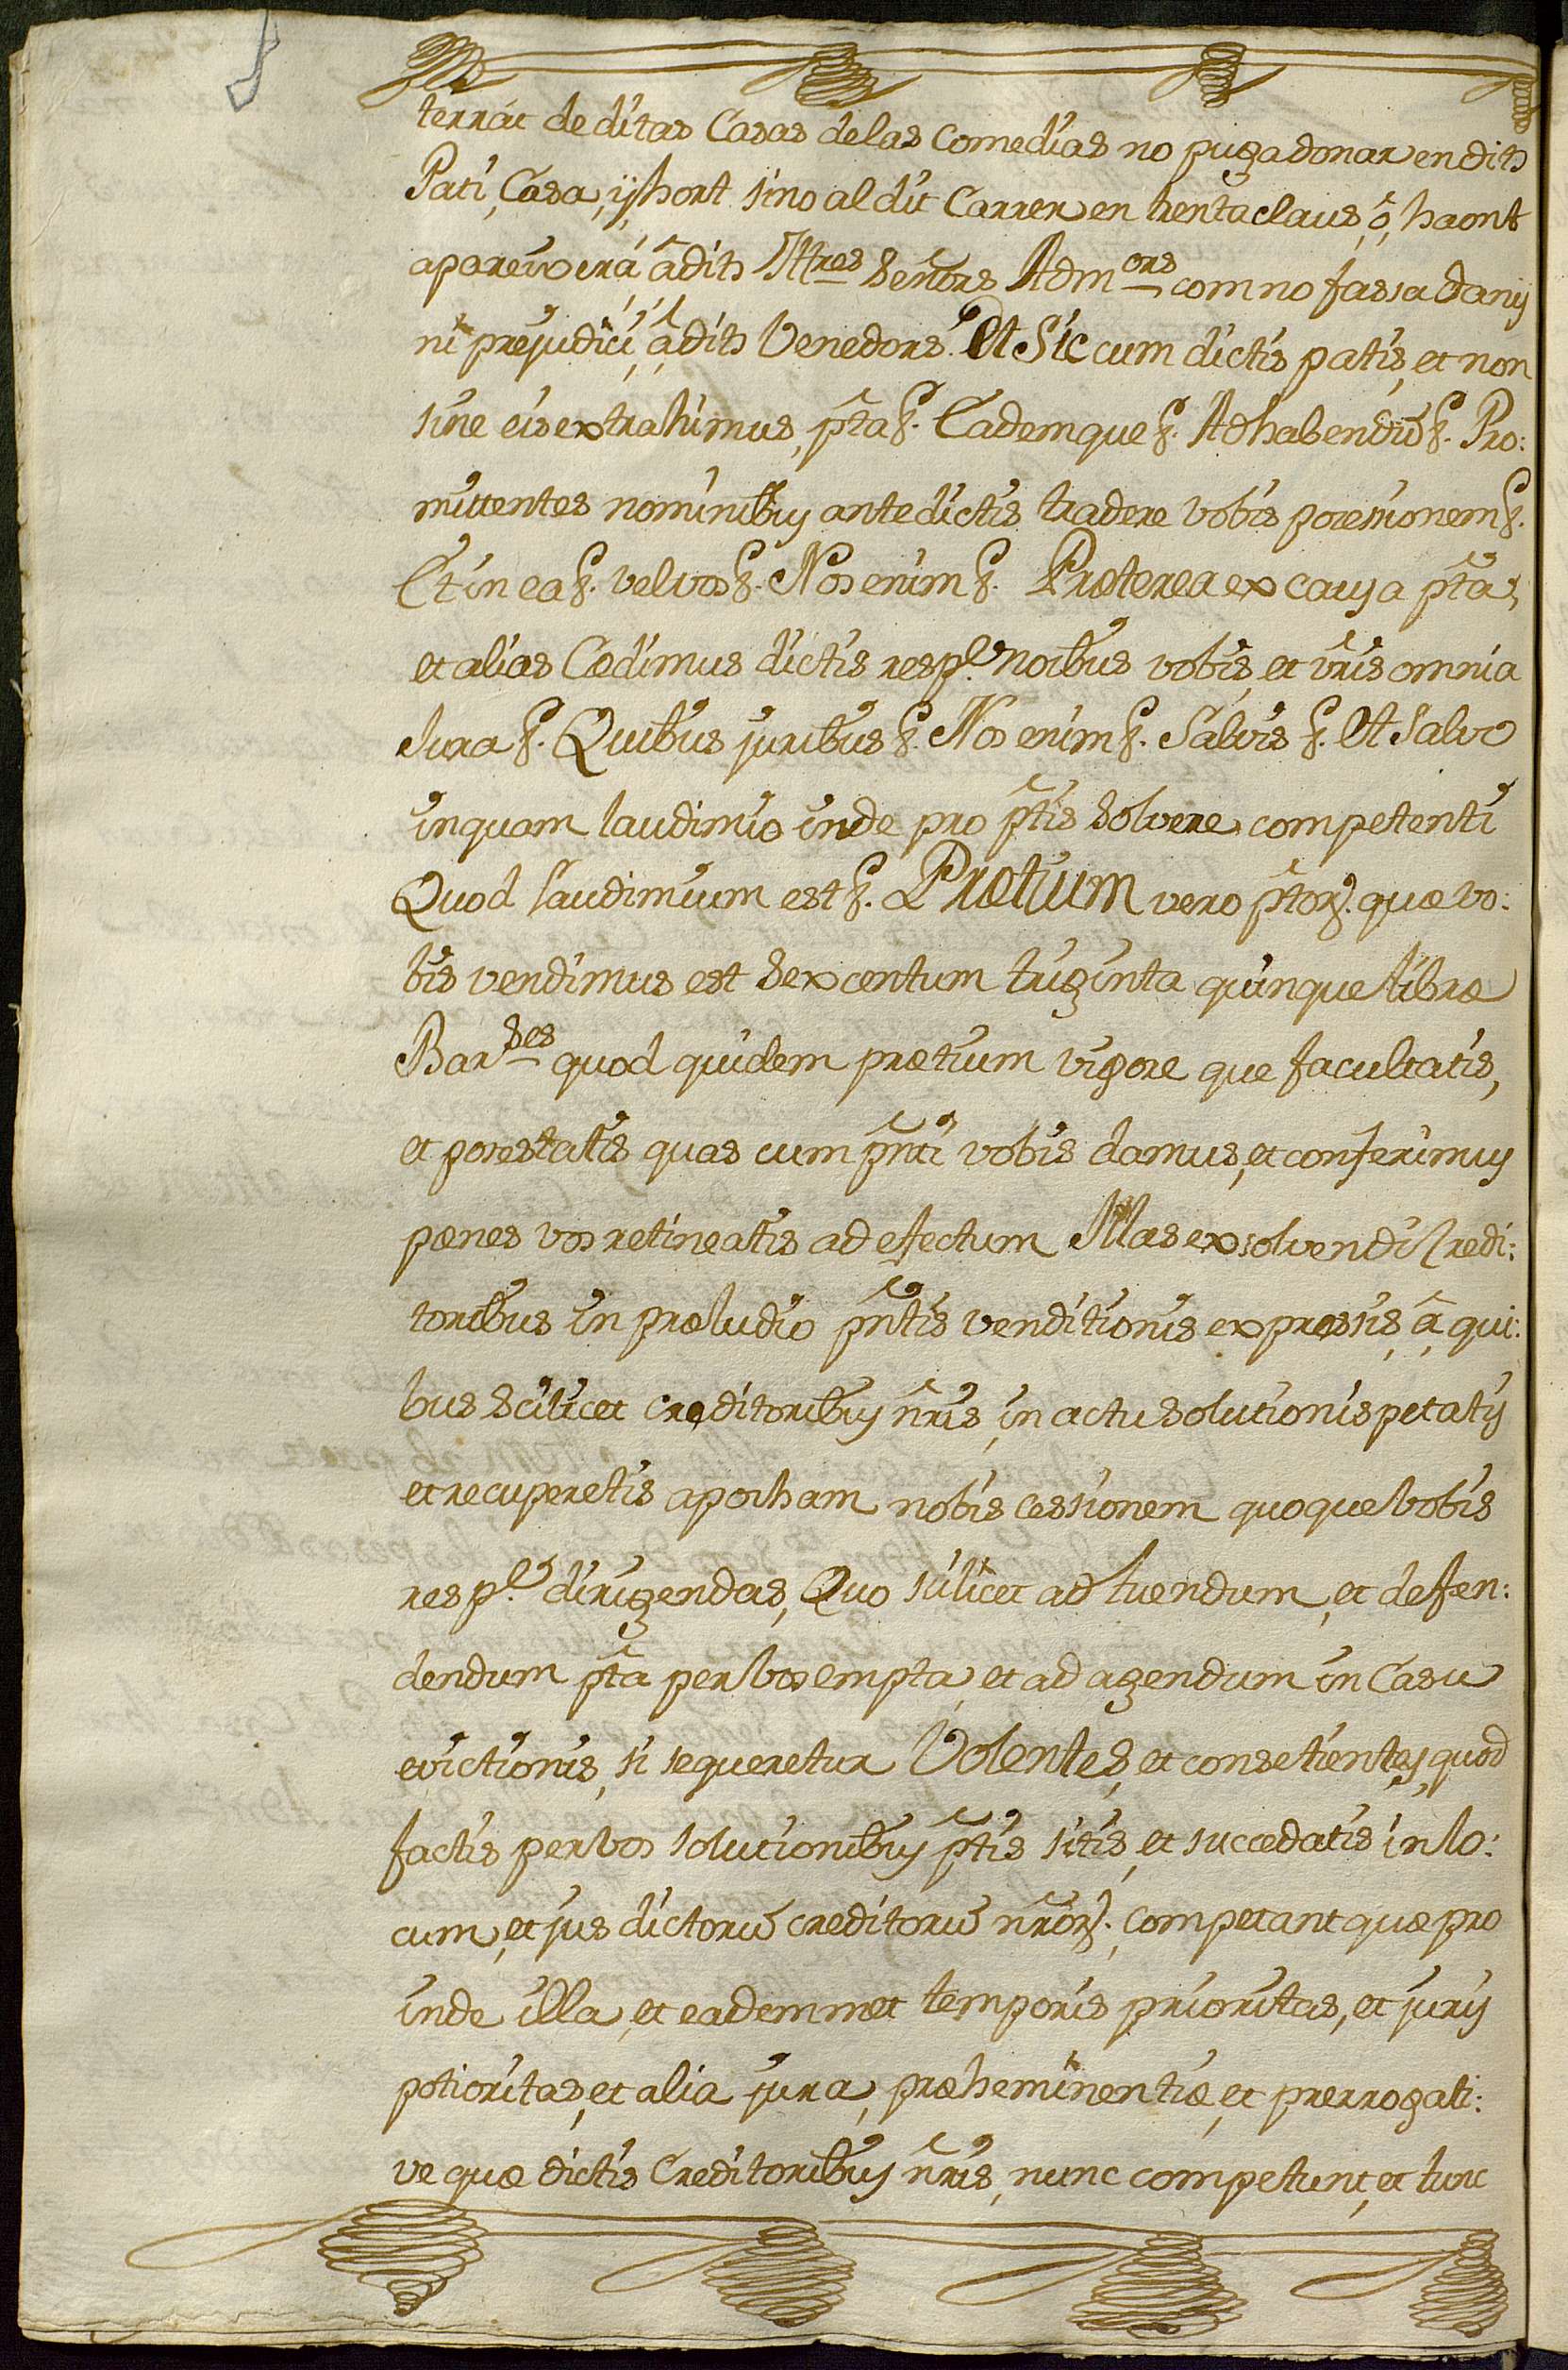 terrat de ditas Casas de las Comedias no puga donar en dits
Pati, Casa, ÿ hort sino al dit Carrer en trentaclaus, ô, haont
apareixerá â dits Iltres Señors Admors com no fassa dany
ni prejudici, â dits Venedors. Et Sic cum dictis patis, et non
sine eis extrahimus, pta &. Eademque &. Ad habendū &. Pro:
mittentes nominibus antedictis tradere vobis posessionem &.
Et in ea &. vel vos &. Nos enim &. Præterea ex causa pta,
et alias Cædimus dictis respe. noibus vobis, et vris omnia
Jura &. Quibus juribus &. Nos enim &. Salvis &. Et Salvo
inquam laudimio inde pro ptis Solvere competenti
Quod laudimium est &. Prætium vero ptor. quæ vo:
bis vendimus est Sexcentum triginta quinque libræ
Barses quod quidem prætium vigore que facultatis,
et potestatis quas cum pnti vobis damus, et conferimus
pænes vos retineatis ad efectum Illas exsolvendi Credi:
toribus in præludio pntis venditionis expressis, â qui:
bus Scilicet creditoribus nris, in actu solutionis petatis
et recuperetis apocham nobis cessionem quoque vobis
respe. dirigendas, Quo scilicet ad tuendum, et defen:
dendum pta per vos empta, et ad agendum in Casu
evictionis, si sequeretur Volentes, et consetientes, quod
factis per vos solutionibus ptis sitis, et succedatis in lo:
cum, et jus dictorū creditorū nror., competant quæ pro
inde illa, et eademmet temporis prioritas, et juris
potioritas, et alia jura, præheminentiæ, et prerrogati:
ve quæ dictis Creditoribus nris, nunc competunt, et tunc